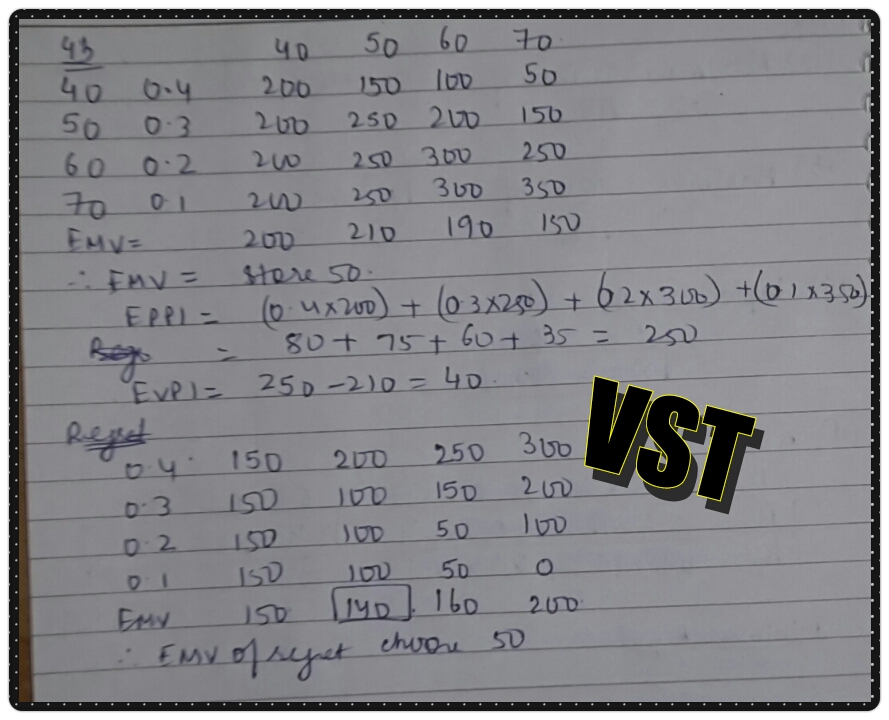 43 40 50 60 70
40 0.4 200 150 100 50
50 0.3 200 250 200 150
60 0.2 200 250 300 250
70 0.1 200 250 300 350
EMV= 200 210 190 150
∴ EMV = Store 50.
EPPI = (0.4x200) + (0.3x250) + (0.2x300) + (0.1x350)
= 80 + 75 + 60 + 35 = 250
EVPI = 250 - 210 = 40.
VST
Regret
0.4 150 200 250 300
0.3 150 100 150 200
0.2 150 100 50 100
0.1 150 100 50 0
EMV 150 140 160 200
∴ EMV of regret choose 50